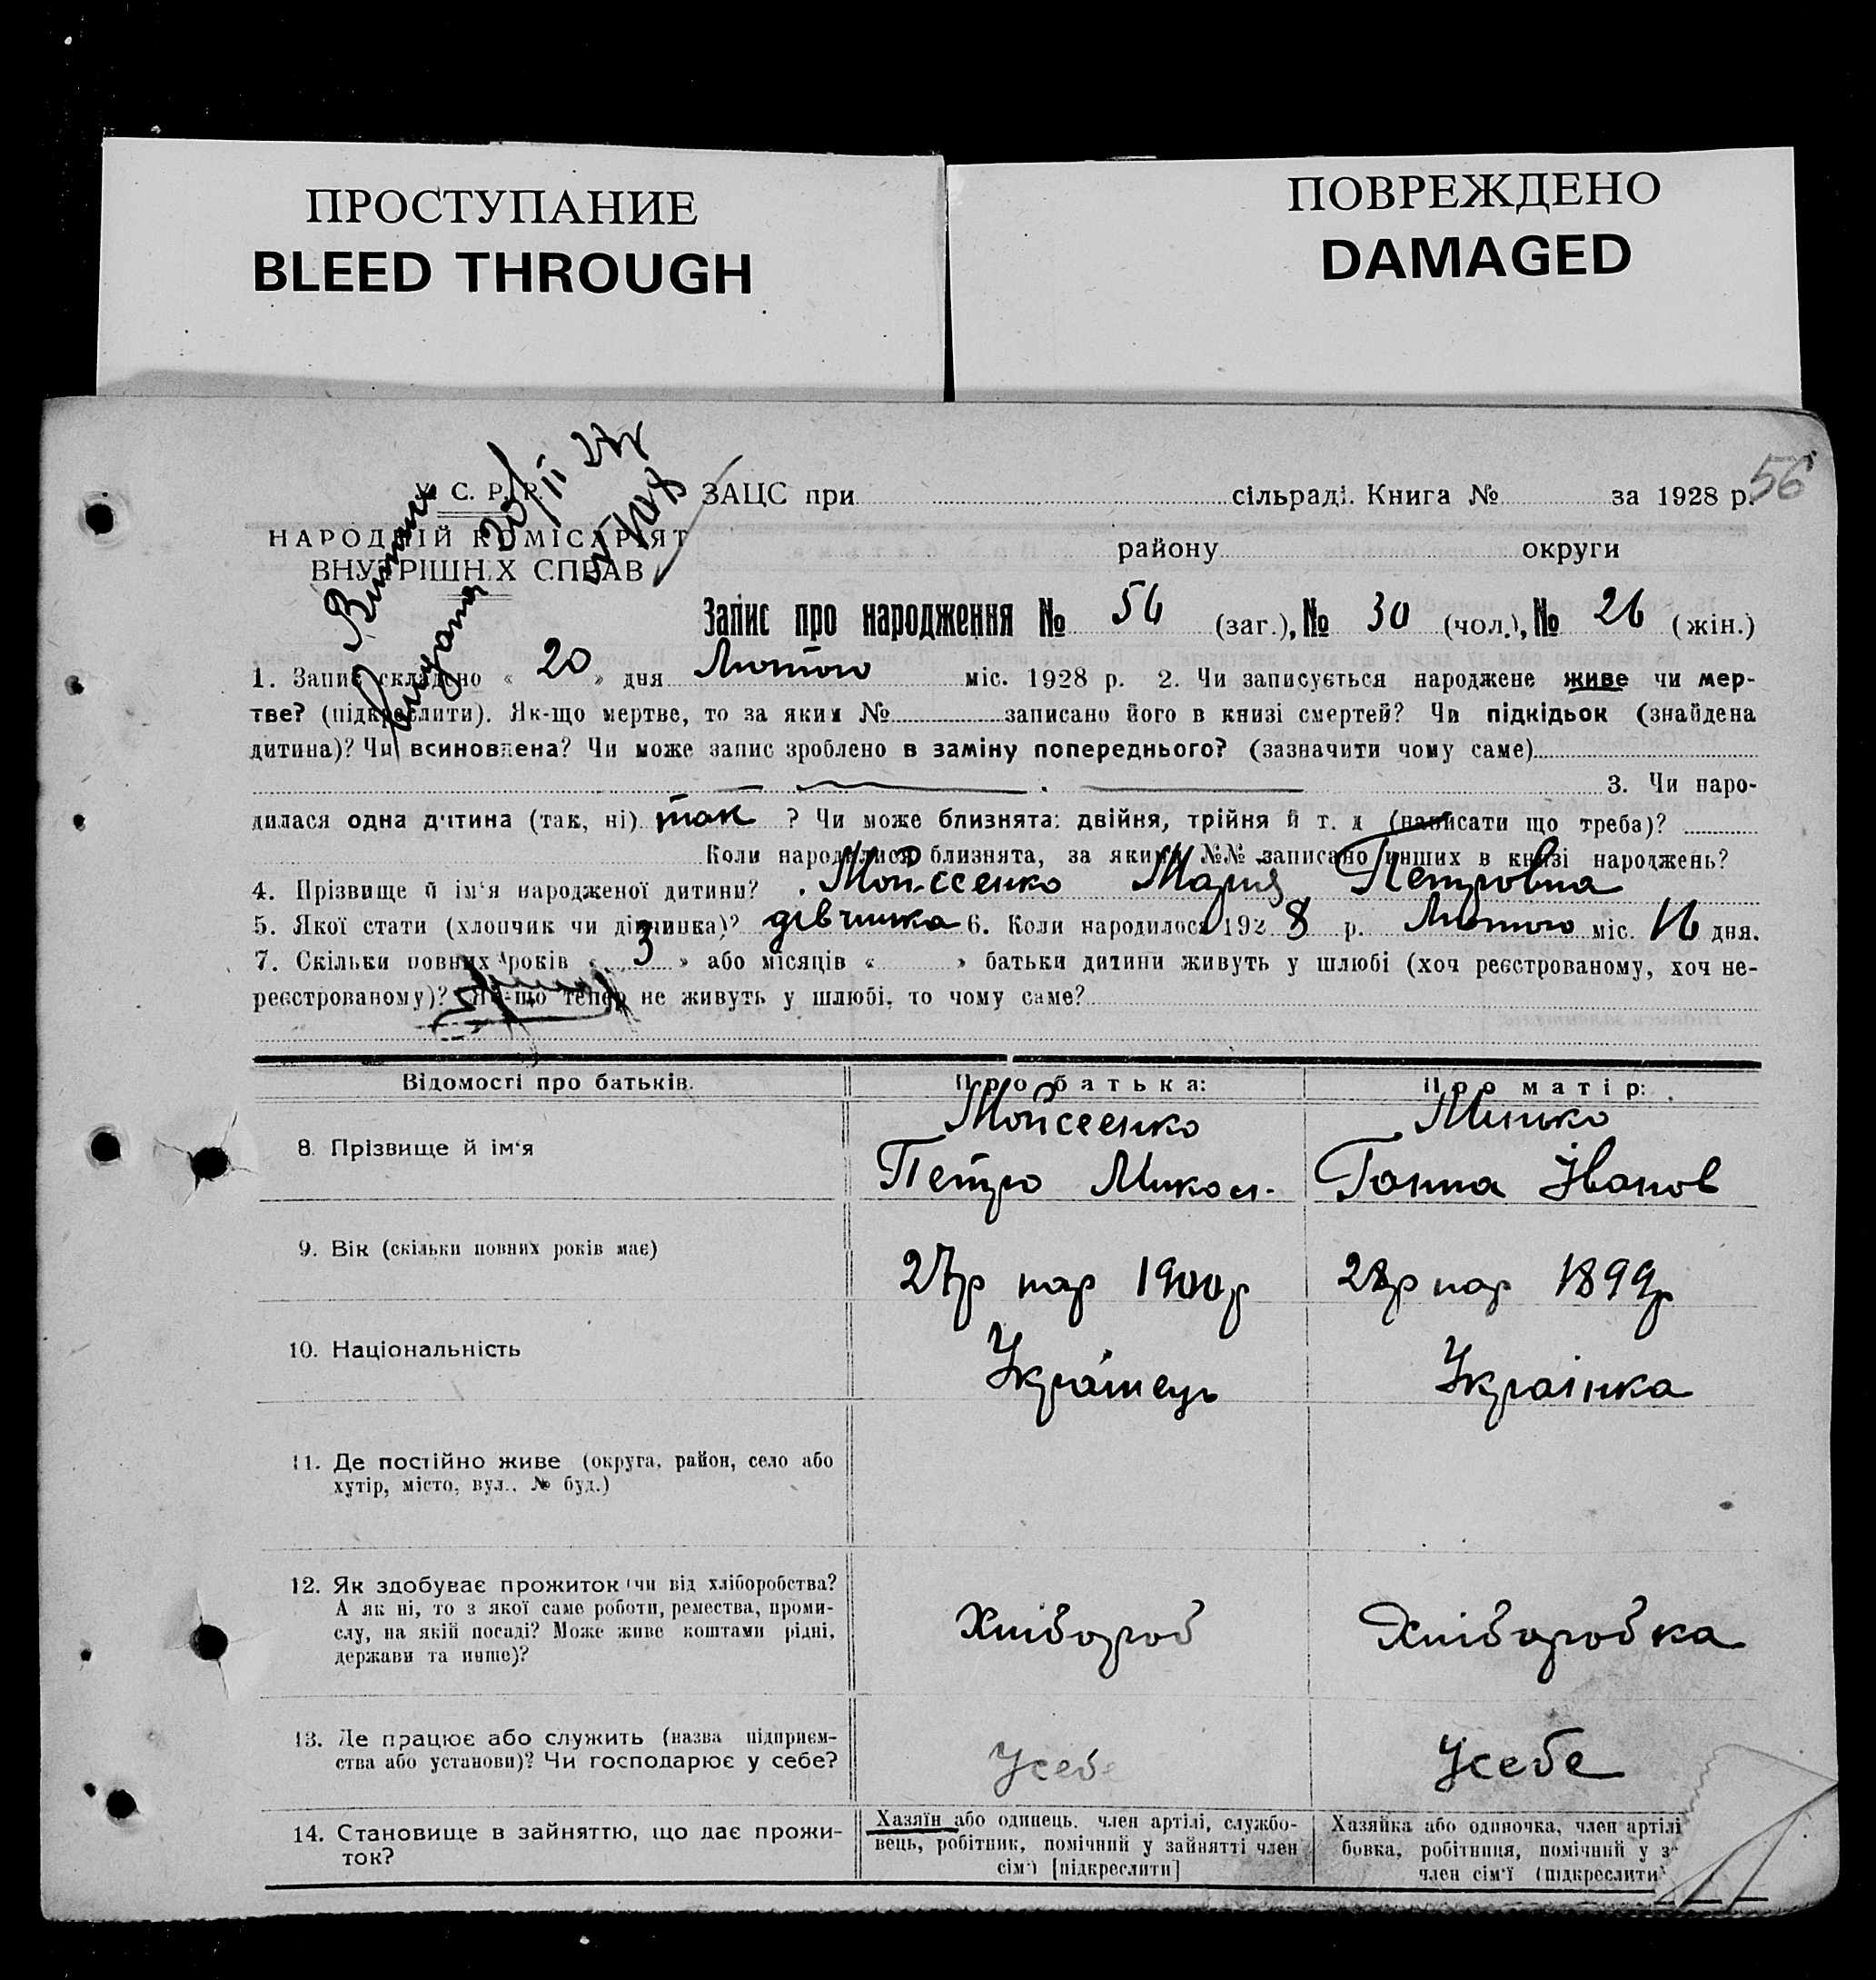 ПРОСТУПАНИЕ
BLEED THROUGH
ПОВРЕЖДЕНО
DAMAGED
56
У. С. Р. Р.
НАРОДНІЙ КОМІСАРІЯТ
ВНУТРІШНІХ СПРАВ
Виписка
видана 20/II 28р
ЗАЦС при сільраді. Книга № за 1928 р.
району округи
Запис про народження № 56 (заг.), № 30 (чол.), № 26 (жін.)
1. Запис складено « 20 » дня Лютого міс. 1928 р. 2. Чи записується народжене живе чи мер-
тве? (підкреслити). Як-що мертве, то за яким № записано його в книзі смертей? Чи підкідьок (знайдена
дитина)? Чи всиновлена? Чи може запис зроблено в заміну попереднього? (зазначити чому саме)
3. Чи наро-
дилася одна дитина (так, ні) так ? Чи може близнята: двійня, трійня й т. д (написати що треба)?
Коли народилися близнята, за якими №№ записано инших в книзі народжень?
4. Прізвище й ім'я народженої дитини? Мойсеенко Мария Петровна
5. Якої стати (хлопчик чи дівчинка)? дівчинка 6. Коли народилося 1928 р. Лютого міс. 16 дня.
7. Скільки повних років « 3 » або місяців « » батьки дитини живуть у шлюбі (хоч реєстрованому, хоч не-
реєстрованому)? Як-що тепер не живуть у шлюбі, то чому саме?
Відомості про батьків. Про батька: Про матір:
8. Прізвище й ім'я Мойсеенко Петро Микол. Минько Ганна Іванов
9. Вік (скільки повних років має) 27р нар 1900р 28р нар 1899р
10. Національність Українець Українка
11. Де постійно живе (округа, район, село або
хутір, місто, вул., № буд.)
12. Як здобуває прожиток (чи від хліборобства?
А як ні, то з якої саме роботи, ремества, проми-
слу, на якій посаді? Може живе коштами рідні,
держави та инше)?
Хлібороб Хліборобка
13. Де працює або служить (назва підприєм-
ства або установи)? Чи господарює у себе?
Усебе Усебе
14. Становище в зайняттю, що дає прожи-
ток?
Хазяїн або одинець, член артілі, службо-
вець, робітник, помічний у зайнятті член
сім'ї [підкреслити]
Хазяйка або одиночка, член артілі
бовка, робітниця, помічний у з
член сім'ї (підкреслити)